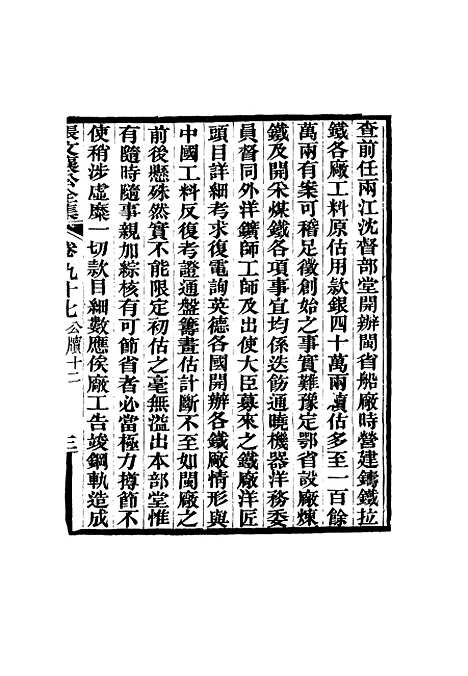 查前任兩江沈督部堂開辦閩省船廠時營建鑄鐵拉
鐵各廠工料原估用款銀四十萬兩續估多至一百餘
萬兩有案可稽足徵創始之事實難豫定鄂省設廠煉
鐵及開采煤鐵各項事宜均係迭飭通曉機器洋務委
員督同外洋鑛師工師及出使大臣募來之鐵廠洋匠
頭目詳細考求復電詢英德各國開辦各鐵廠情形與
中國工料反復考證通盤籌畫估計斷不至如閩廠之
前後懸殊然實不能限定初估之毫無溢出本部堂惟
有隨時隨事親加綜核有可節省者必當極力撙節不
使稍涉虛糜一切款目細數應俟廠工告竣鋼軌造成
張文襄公全集 卷九十七 公牘十二 三